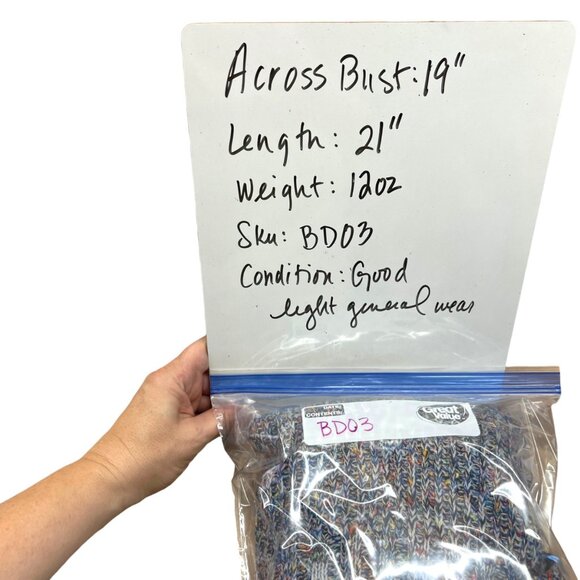 Across Bust: 19"
Length: 21"
Weight: 12oz
Sku: BD03
Condition: Good
light general wear
DATE:
CONTENTS:
Great
Value
BD03